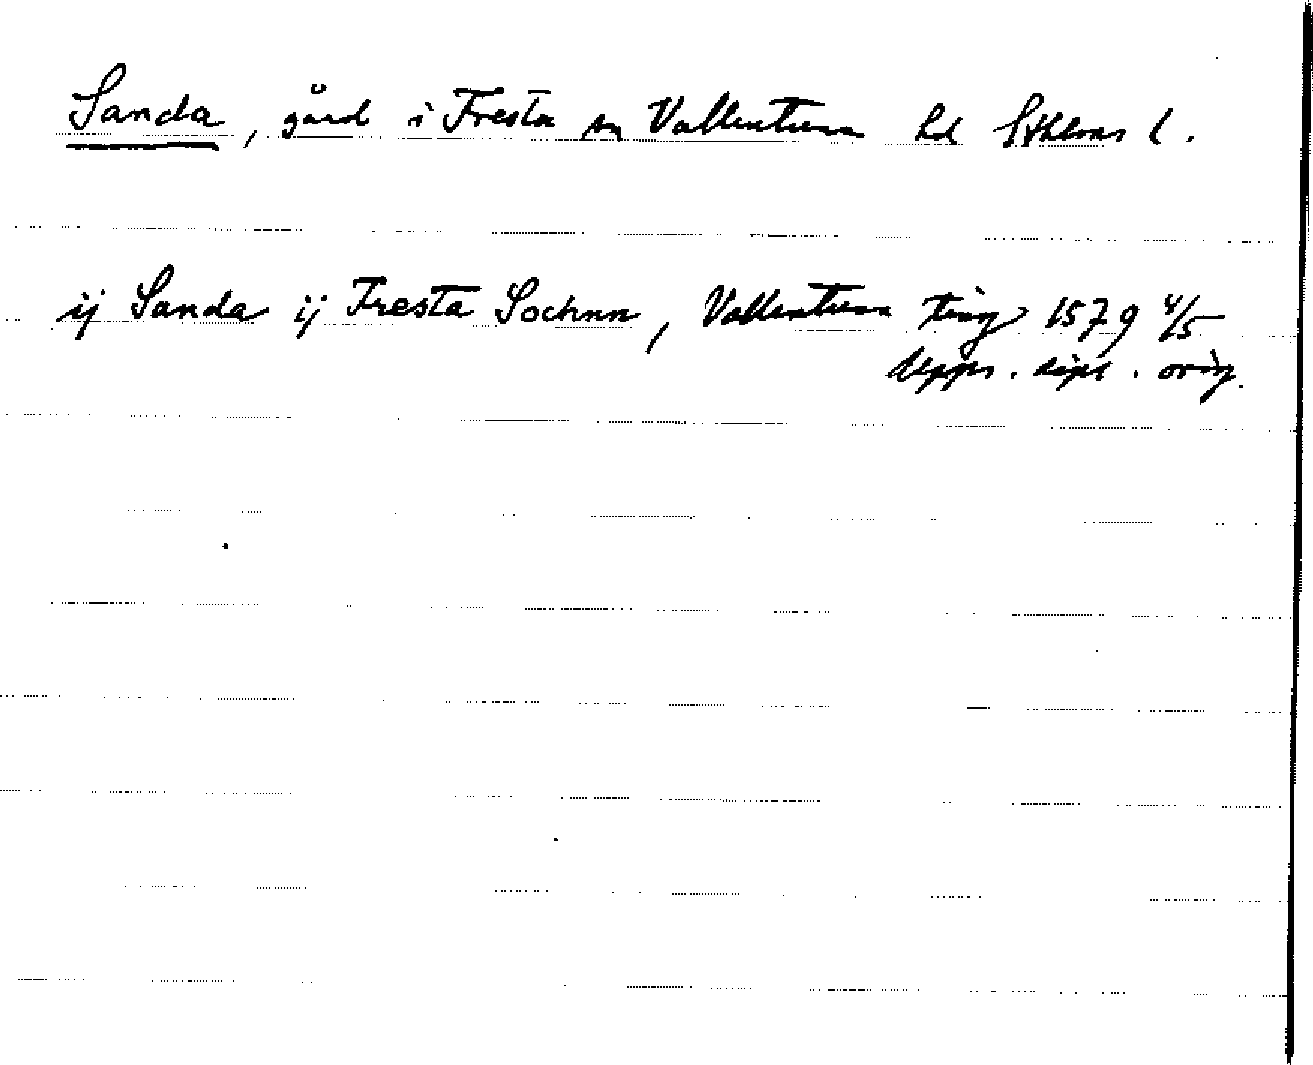 Sanda, gård i Fresta sn Vallentuna hd Sthlms l.
ij Sanda ij Fresta Sochnn, Vallentuna ting 1579 4/5
Upps. dipl. orig.